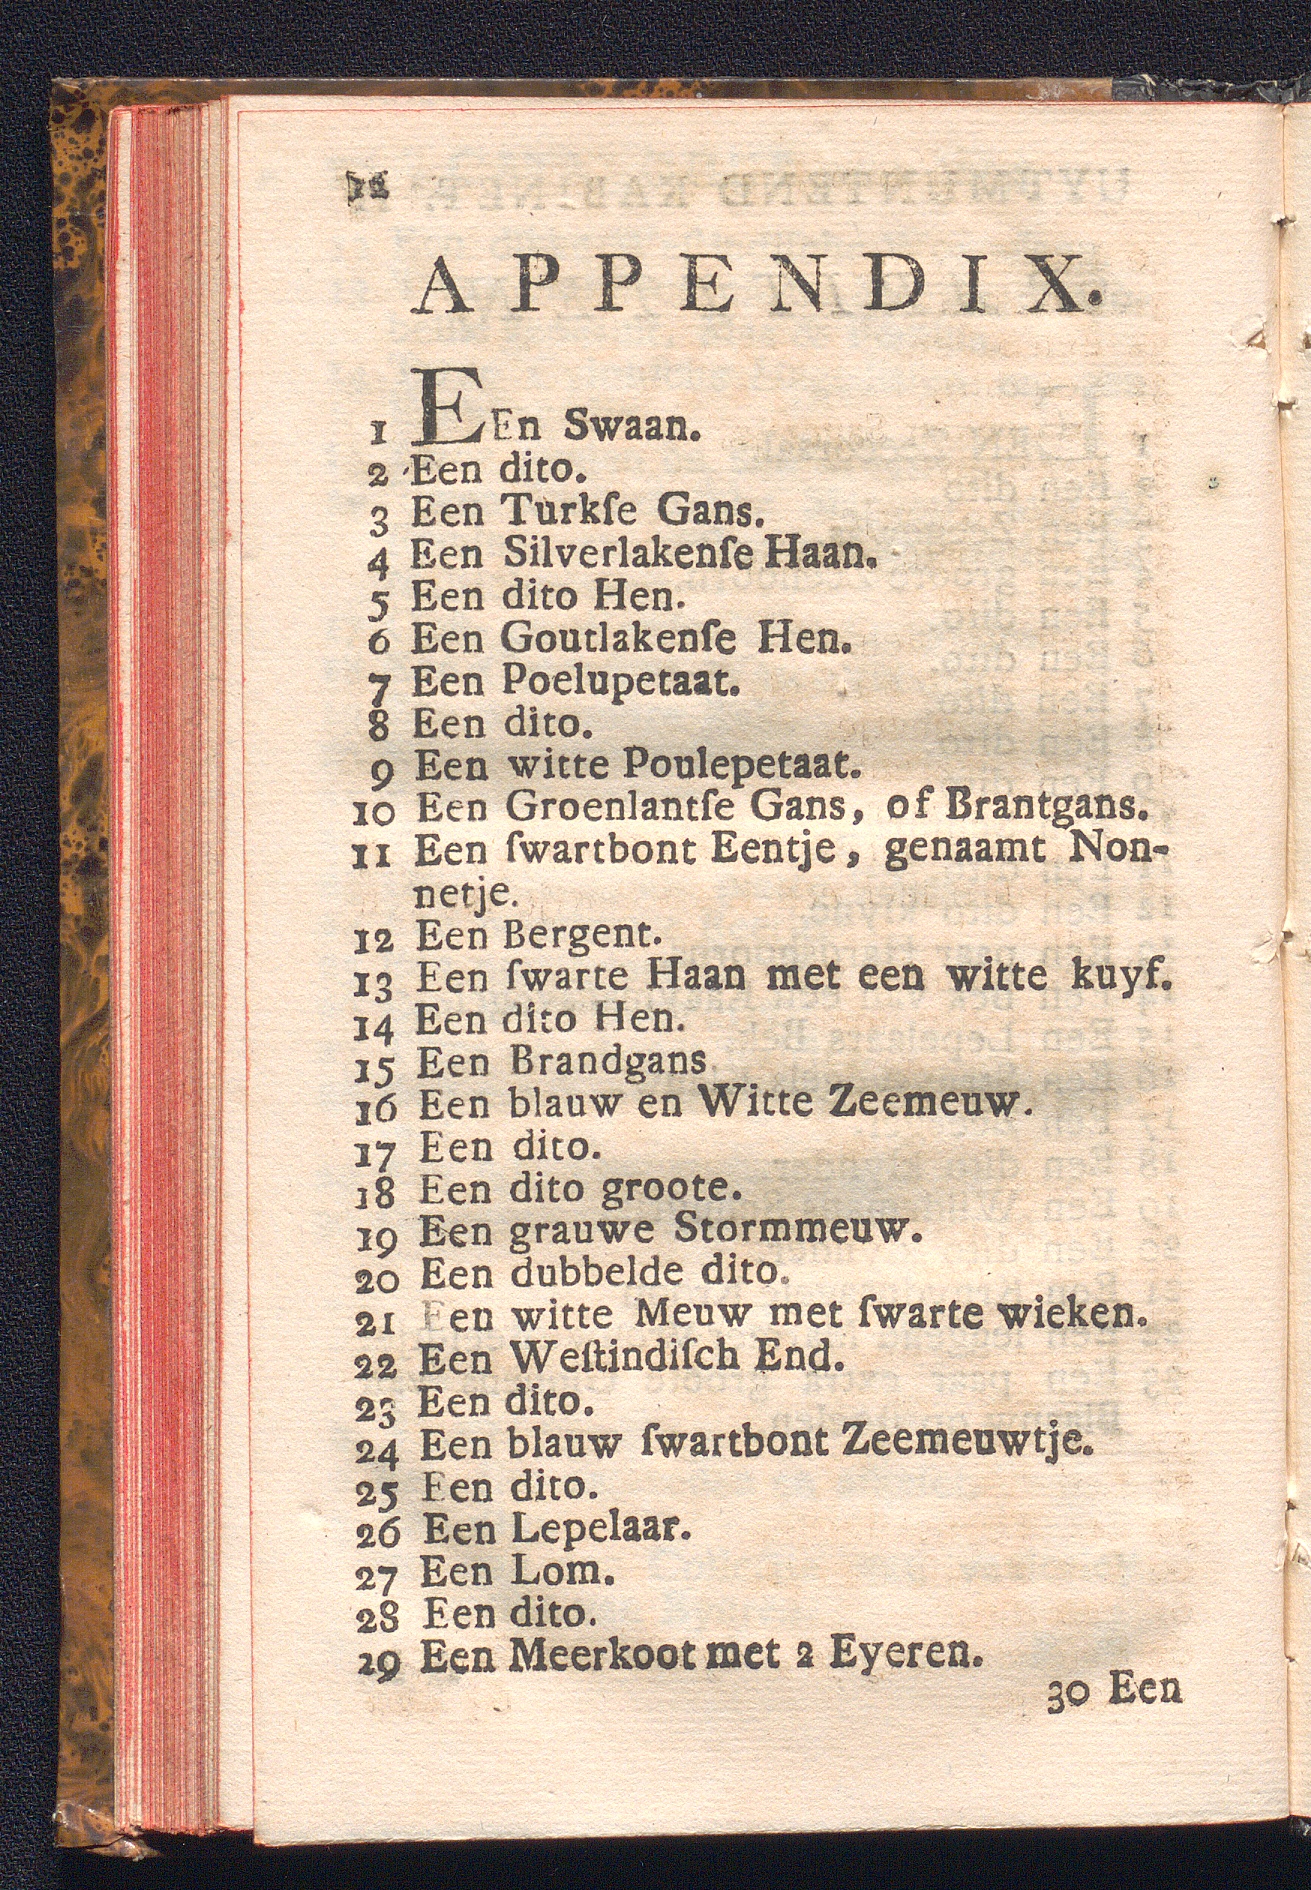 12
APPENDIX.
1 EEn Swaan.
2 Een dito.
3 Een Turkſe Gans.
4 Een Silverlakenſe Haan.
5 Een dito Hen.
6 Een Goutlakenſe Hen.
7 Een Poelupetaat.
8 Een dito.
9 Een witte Poulepetaat.
10 Een Groenlantſe Gans, of Brantgans.
11 Een ſwartbont Eentje, genaamt Non-
netje.
12 Een Bergent.
13 Een ſwarte Haan met een witte kuyf.
14 Een dito Hen.
15 Een Brandgans.
16 Een blauw en Witte Zeemeuw.
17 Een dito.
18 Een dito groote.
19 Een grauwe Stormmeuw.
20 Een dubbelde dito.
21 Een witte Meuw met ſwarte wieken.
22 Een Weſtindiſch End.
23 Een dito.
24 Een blauw ſwartbont Zeemeuwtje.
25 Een dito.
26 Een Lepelaar.
27 Een Lom.
28 Een dito.
29 Een Meerkoot met 2 Eyeren.
30 Een